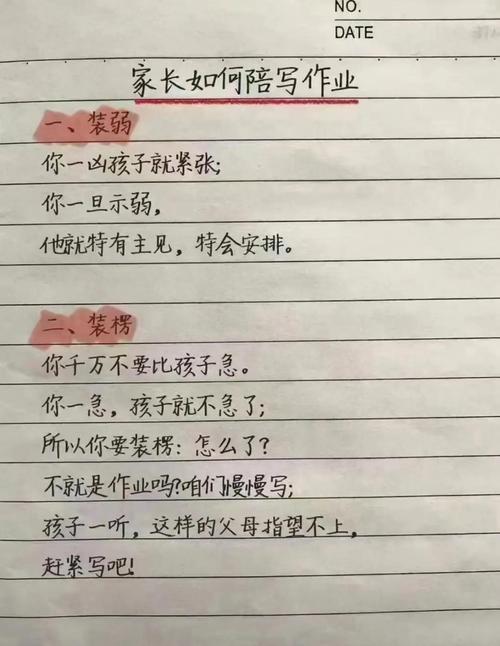 NO.
DATE
家长如何陪写作业
一、装弱
你一凶孩子就紧张;
你一旦示弱,
他就特有主见，特会安排。
二、装楞
你千万不要比孩子急。
你一急，孩子就不急了;
所以你要装楞:怎么了?
不就是作业吗?咱们慢慢写;
孩子一听，这样的父母指望不上,
赶紧写吧!